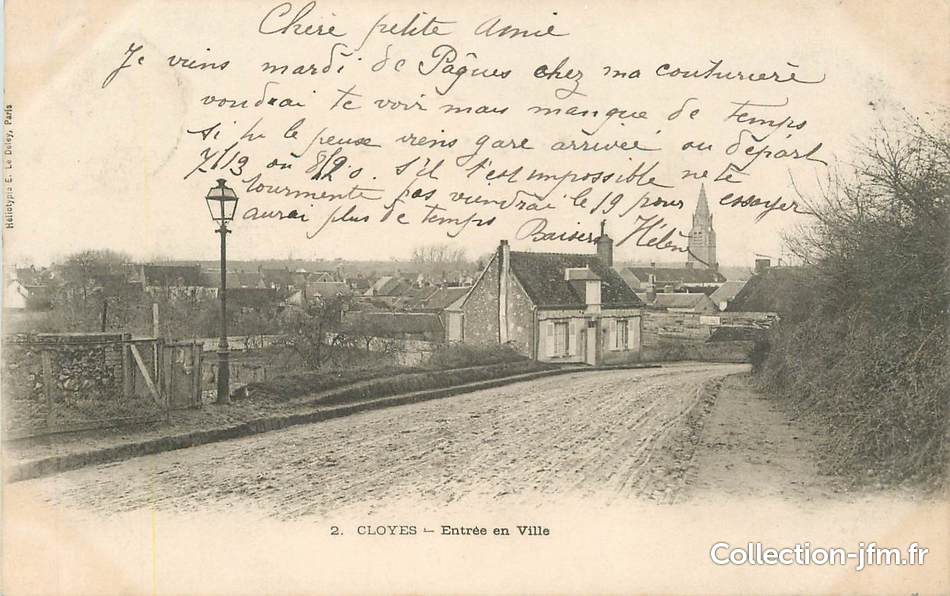 Chère petite Amie
Je viens mardi de Pâques chez ma couturière
voudrai te voir mais manque de temps
si tu le peux viens gare arrivée ou départ
7h3 ou s'il t'est impossible ne te
tourmente pas viendrai le 19 pour essayer
aurai plus de temps Baisers Hélène
Héliotypie E. Le Deley, Paris
2. CLOYES — Entrée en Ville
Collection-jfm.fr